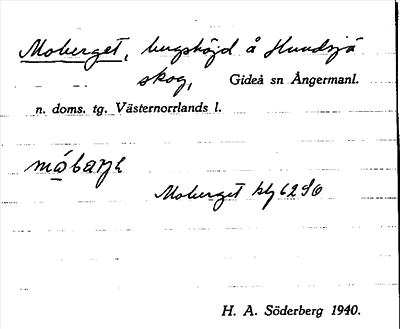 Moberget, bergshöjd å Hundsjö
skog, Gideå sn Ångermanl.
n. doms. tg. Västernorrlands l.
Moberget blj 62 SO
H. A. Söderberg 1940.